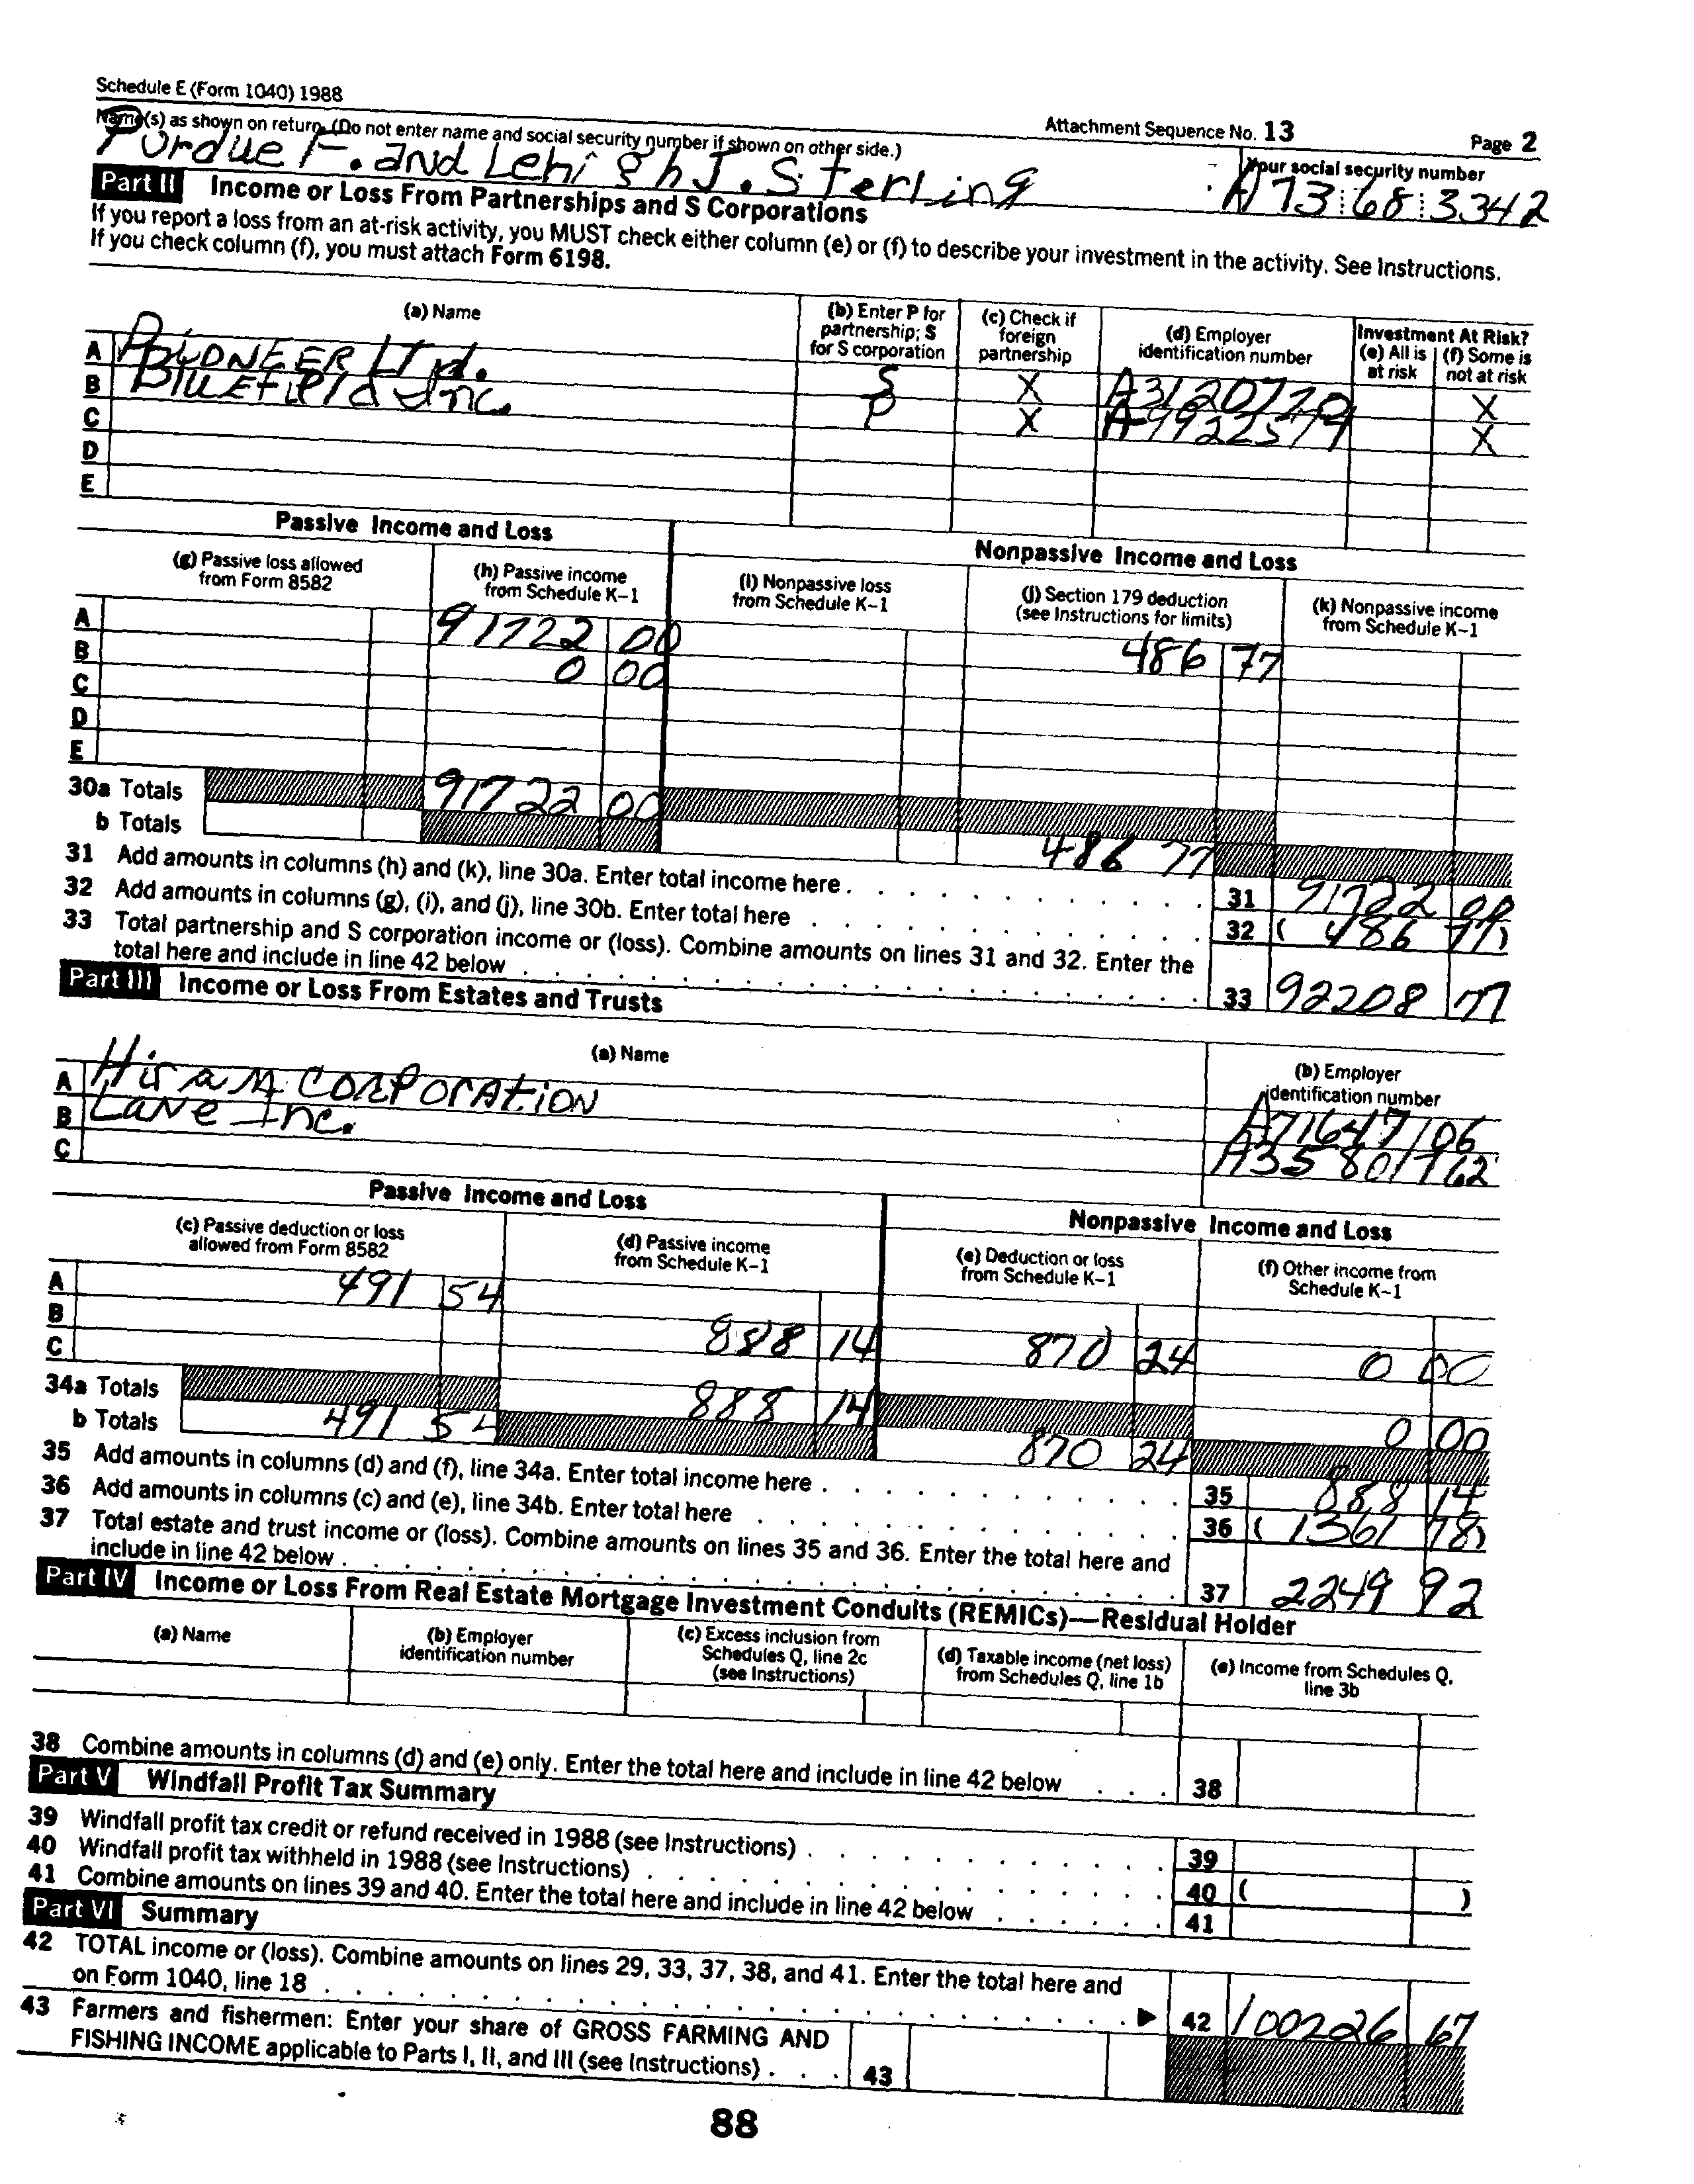 Schedule E (Form 1040) 1988
Attachment Sequence No. 13
Page 2
Name(s) as shown on return. (Do not enter name and social security number if shown on other side.)
Your social security number
Purdue F. and Lehigh J. Sterling
A73 68 3342
Part II Income or Loss From Partnerships and S Corporations
If you report a loss from an at-risk activity, you MUST check either column (e) or (f) to describe your investment in the activity. See Instructions.
If you check column (f), you must attach Form 6198.
(a) Name
(b) Enter P for partnership; S for S corporation
(c) Check if foreign partnership
(d) Employer identification number
Investment At Risk?
(e) All is at risk
(f) Some is not at risk
A PIONEER Ltd. S X A3120772 X
B Bluefield Inc. P X A9922579 X
C
D
E
Passive Income and Loss
Nonpassive Income and Loss
(g) Passive loss allowed from Form 8582
(h) Passive income from Schedule K-1
(i) Nonpassive loss from Schedule K-1
(j) Section 179 deduction (see Instructions for limits)
(k) Nonpassive income from Schedule K-1
A 91722 00 486 77
B 0 00
C
D
E
30a Totals 91722 00
b Totals 486 77
31 Add amounts in columns (h) and (k), line 30a. Enter total income here 31 91722 00
32 Add amounts in columns (g), (i), and (j), line 30b. Enter total here 32 ( 486 77)
33 Total partnership and S corporation income or (loss). Combine amounts on lines 31 and 32. Enter the
total here and include in line 42 below 33 92208 77
Part III Income or Loss From Estates and Trusts
(a) Name
(b) Employer identification number
A Hiram CORPORATION A71647106
B Lane Inc. A35801762
C
Passive Income and Loss
Nonpassive Income and Loss
(c) Passive deduction or loss allowed from Form 8582
(d) Passive income from Schedule K-1
(e) Deduction or loss from Schedule K-1
(f) Other income from Schedule K-1
A 491 54
B 888 14 870 24 0 00
C
34a Totals 888 14 0 00
b Totals 491 54 870 24
35 Add amounts in columns (d) and (f), line 34a. Enter total income here 35 888 14
36 Add amounts in columns (c) and (e), line 34b. Enter total here 36 ( 1361 78)
37 Total estate and trust income or (loss). Combine amounts on lines 35 and 36. Enter the total here and
include in line 42 below 37 2249 92
Part IV Income or Loss From Real Estate Mortgage Investment Conduits (REMICs)—Residual Holder
(a) Name
(b) Employer identification number
(c) Excess inclusion from Schedules Q, line 2c (see Instructions)
(d) Taxable income (net loss) from Schedules Q, line 1b
(e) Income from Schedules Q, line 3b
38 Combine amounts in columns (d) and (e) only. Enter the total here and include in line 42 below 38
Part V Windfall Profit Tax Summary
39 Windfall profit tax credit or refund received in 1988 (see Instructions) 39
40 Windfall profit tax withheld in 1988 (see Instructions) 40 ( )
41 Combine amounts on lines 39 and 40. Enter the total here and include in line 42 below 41
Part VI Summary
42 TOTAL income or (loss). Combine amounts on lines 29, 33, 37, 38, and 41. Enter the total here and
on Form 1040, line 18 ▶ 42 100226 67
43 Farmers and fishermen: Enter your share of GROSS FARMING AND
FISHING INCOME applicable to Parts I, II, and III (see Instructions) 43
88